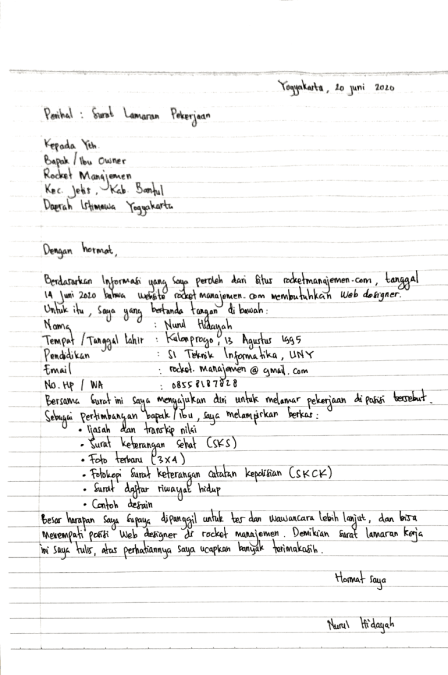 Yogyakarta, 20 juni 2020
Perihal : Surat Lamaran Pekerjaan
Kepada Yth.
Bapak / Ibu Owner
Rocket Manajemen
Kec. Jetis, Kab Bantul
Daerah Istimewa Yogyakarta
Dengan hormat,
Berdasarkan Informasi yang saya peroleh dari situs rocketmanajemen.com, tanggal
14 Juni 2020 bahwa website rocketmanajemen.com membutuhkan web designer.
Untuk itu, saya yang bertanda tangan di bawah:
Nama : Nurul Hidayah
Tempat / Tanggal Lahir : Kulonprogo, 13 Agustus 1995
Pendidikan : S1 Teknik Informatika, UNY
Email : rocket.manajemen@gmail.com
No. HP / WA : 08558187828
Bersama surat ini saya mengajukan diri untuk melamar pekerjaan di posisi tersebut.
Sebagai pertimbangan bapak/ibu, saya melampirkan berkas:
• Ijasah dan transkip nilai
• Surat keterangan sehat (SKS)
• Foto terbaru (3x4)
• Fotokopi surat keterangan catatan kepolisian (SKCK)
• Surat daftar riwayat hidup
• Contoh desain
Besar harapan saya supaya dipanggil untuk tes dan wawancara lebih lanjut, dan bisa
menempati posisi web designer di rocket manajemen. Demikian surat lamaran kerja
ini saya tulis, atas perhatiannya saya ucapkan banyak terimakasih.
Hormat saya
Nurul Hidayah